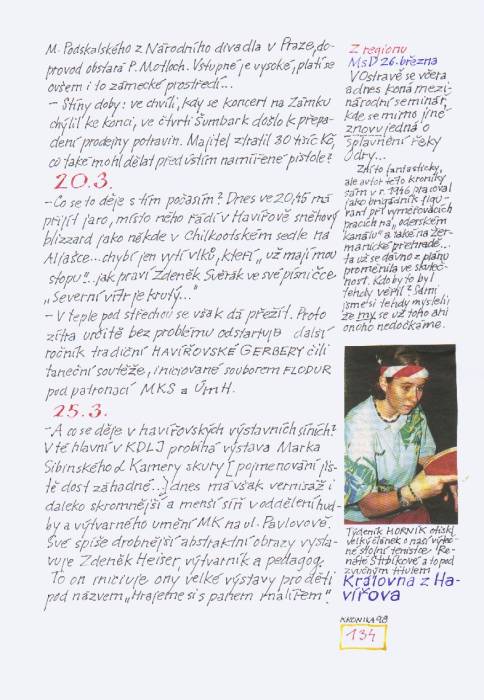 M. Podskalského z Národního divadla v Praze, do-
provod obstará P. Motloch. Vstupné je vysoké, platí se
ovšem i to zámecké prostředí...
– Stíny doby: ve chvíli, kdy se koncert na Zámku
chýlil ke konci, ve čtvrti Šumbark došlo k přepa-
dení prodejny potravin. Majitel ztratil 30 tisíc Kč,
co také mohl dělat před ústím namířené pistole?
20.3.
– Co se to děje s tím počasím? Dnes ve 20,45 má
přijít jaro, místo něho řádí v Havířově sněhový
blizzard jako někde v Chilkootském sedle na
Aljašce... chybí jen vytí vlků, kteří „už mají mou
stopu"... jak praví Zdeněk Svěrák ve své písničce
„Severní vítr je krutý..."
– V teple pod střechou se však dá přežít. Proto
zítra určitě bez problému odstartuje další
ročník tradiční HAVÍŘOVSKÉ GERBERY čili
taneční soutěže, iniciované souborem FLODUR
pod patronací MKS a ÚMH.
25.3.
– A co se děje v havířovských výstavních síních?
V té hlavní v KDLJ probíhá výstava Marka
Sibinského & Kamery skury [pojmenování jis-
tě dost záhadné...] dnes má však vernisáž i
daleko skromnější a menší síň v oddělení hud-
by a výtvarného umění MK na ul. Pavlovově.
Své spíše drobnější abstraktní obrazy vysta-
vuje Zdeněk Heiser, výtvarník a pedagog.
To on iniciuje ony velké výstavy pro děti
pod názvem „Hrajeme si s panem malířem".
Z regionu
MsD 26. března
V Ostravě se včera
a dnes koná mezi-
národní seminář,
kde se mimo jiné
znovu jedná o
splavnění řeky
Odry...
Zní to fantasticky,
ale autor této kroniky
sám v r. 1946 pracoval
jako brigádník figu-
rant při vyměřovacích
pracích na „oderském
kanálu" a také na žer-
manické přehradě...
ta už se dávno z plánu
proměnila ve skuteč-
nost. Kdo by to byl
tehdy věřil? Sami
jsme si tehdy mysleli,
že my se už toho ani
onuho nedočkáme.
Týdeník HORNÍK otiskl
velký článek o naší výbor-
né stolní tenistce Re-
nátě Štrbíkové a to pod
zvučným titulem
Královna z Ha-
vířova
KRONIKA 98
134